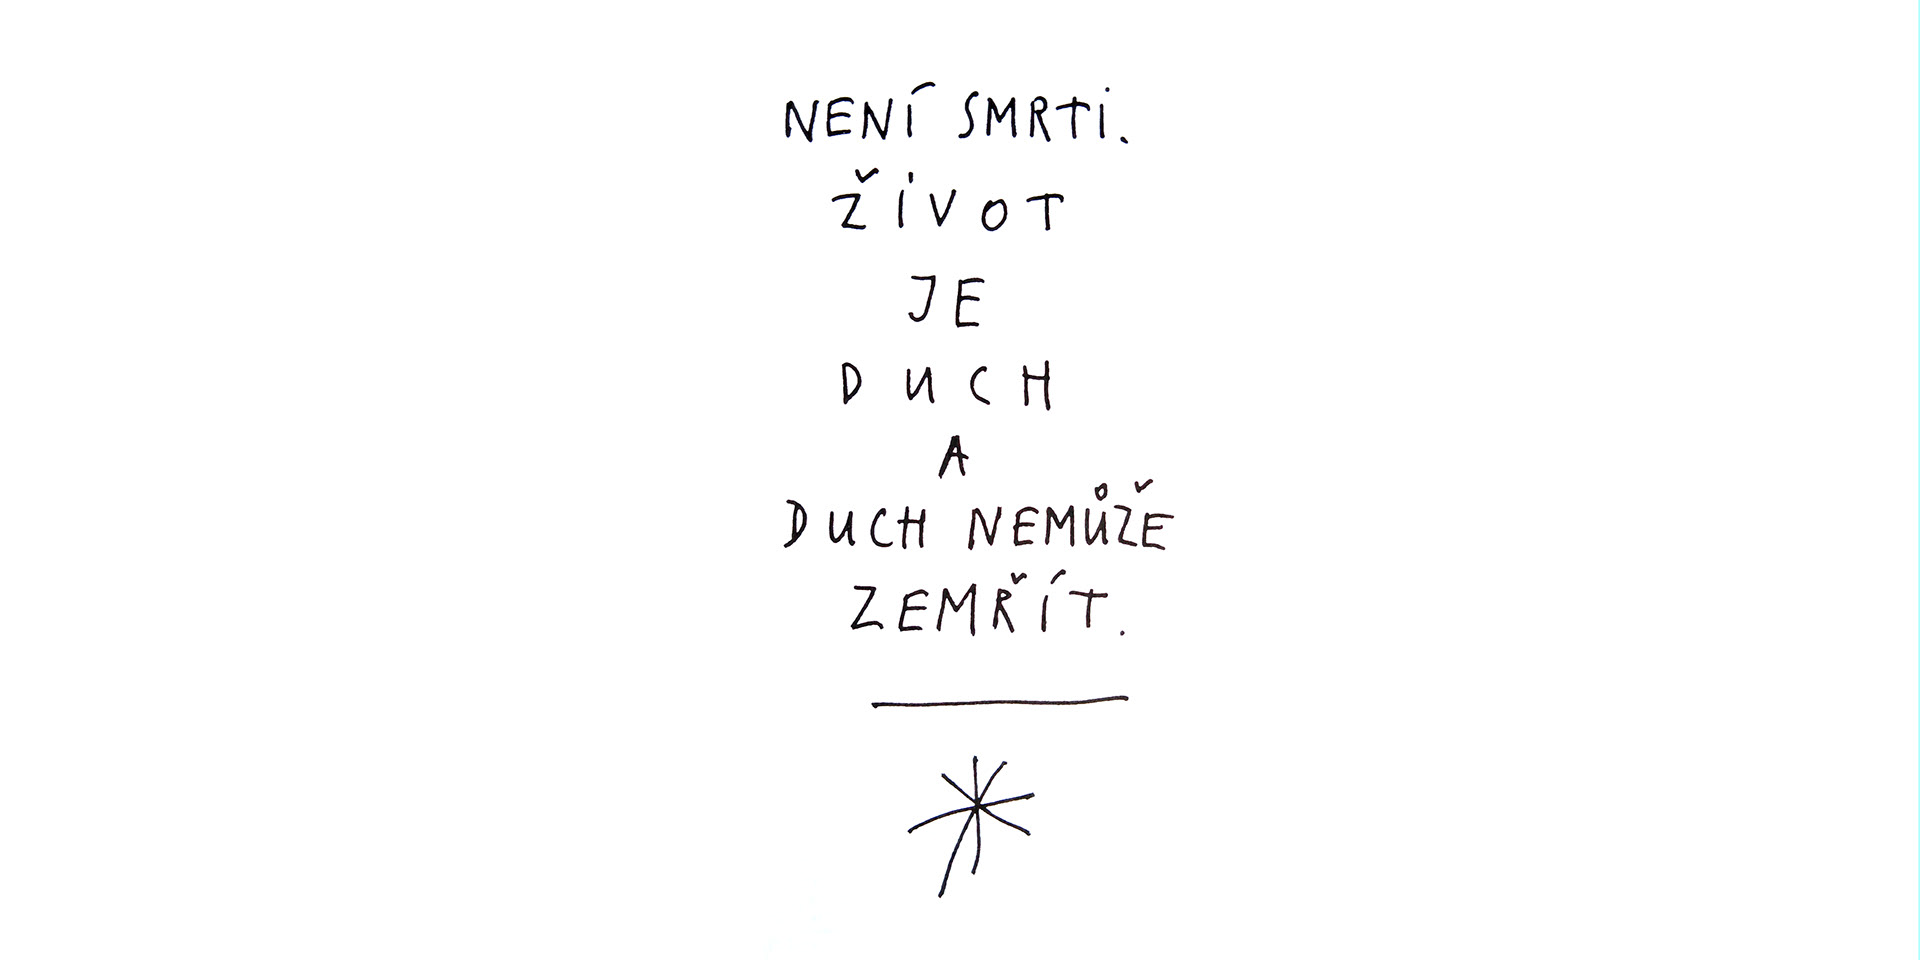 NENÍ SMRTI.
ŽIVOT
JE
DUCH
A
DUCH NEMŮŽE
ZEMŘÍT.